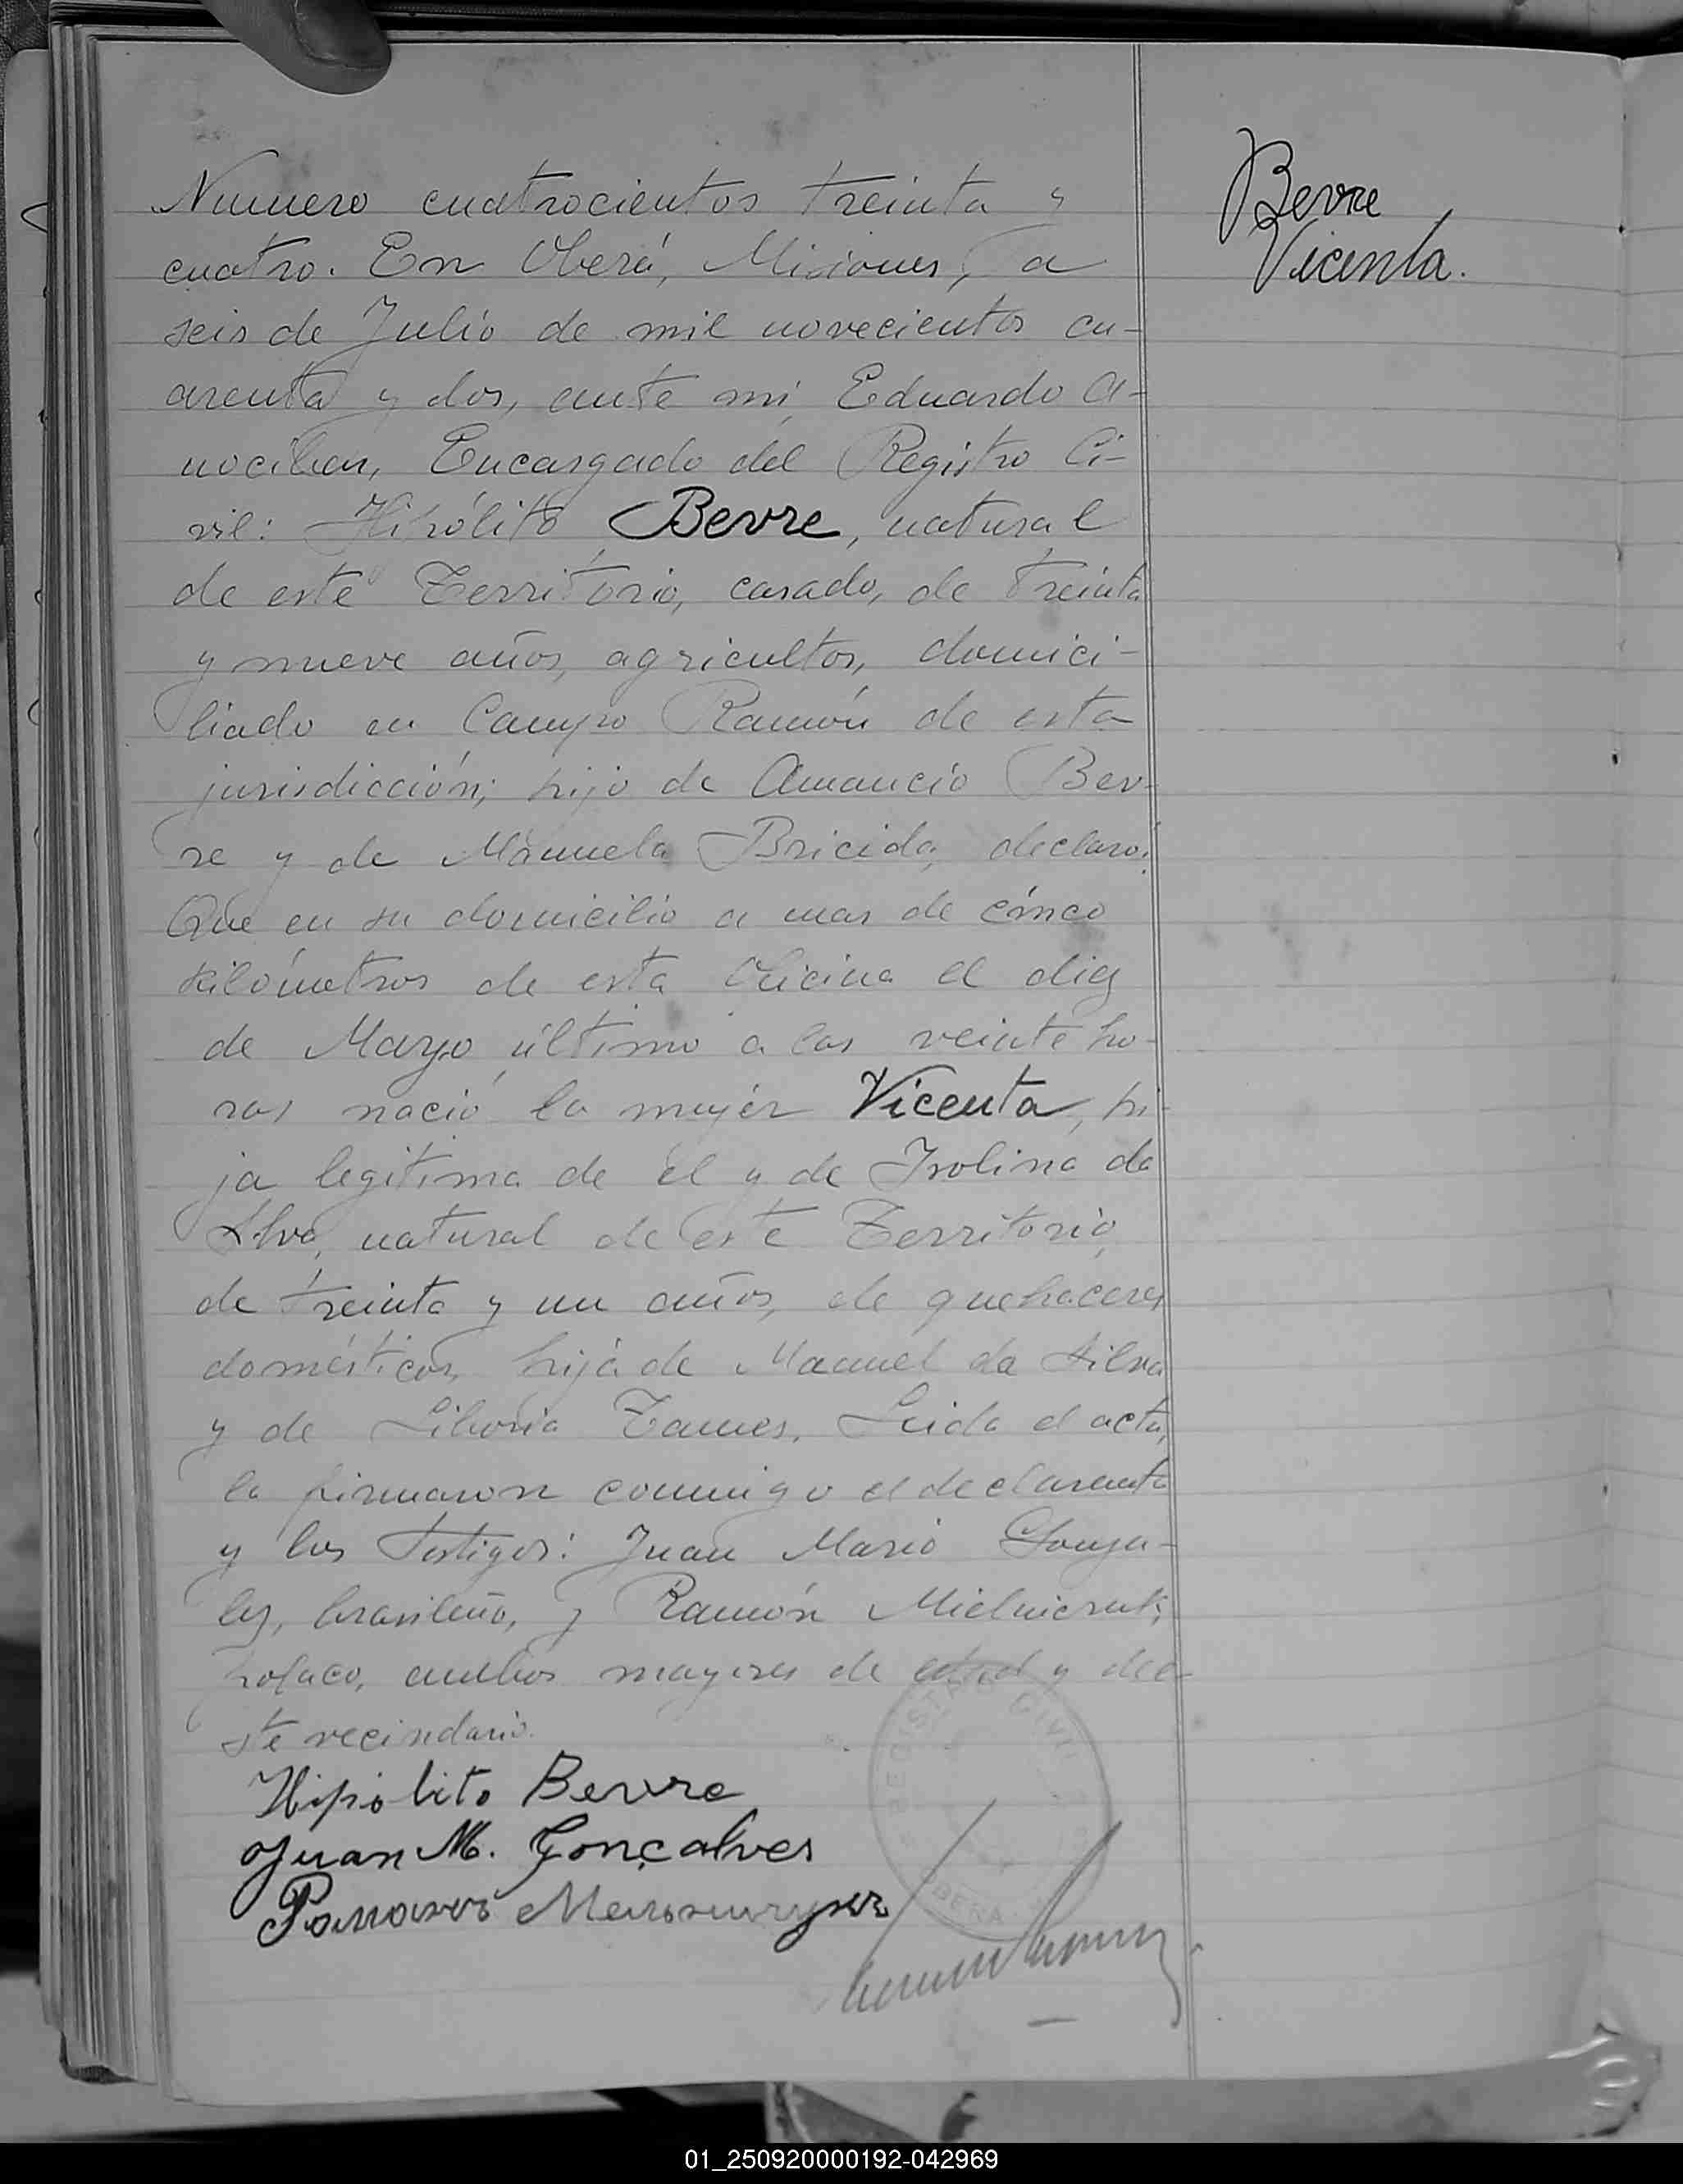 Numero cuatrocientos treinta y
cuatro. En Oberá, Misiones, a
seis de Julio de mil novecientos cu-
arenta y dos, ante mi, Eduardo A-
nocibar, Encargado del Registro Ci-
vil: Hipólito Bevre, natural
de este Territorio, casado, de treinta
y nueve años, agricultor, domici-
liado en Campo Ramón de esta
jurisdicción; hijo de Amancio Bev-
re y de Manuela Bricida, declaro:
Que en su domicilio a mas de cinco
kilómetros de esta Oficina el diez
de Mayo último a las veinte ho-
ras nació la mujer Vicenta, hi-
ja legitima de él y de Isolina da
Silva, natural de este Territorio,
de treinta y un años, de quehaceres
domésticos, hija de Manuel da Silva
y de Liboria Tames. Leida el acta,
la firmaron conmigo el declarante
y los testigos: Juan Mario Gonza-
lez, brasileño, y Ramón
polaco, ambos mayores de edad y de e-
ste vecindario.
Hipólito Bevre
Juan M. Gonçalves
Bevre
Vicenta.
REGISTRO CIVIL
OBERA
01_250920000192-042969